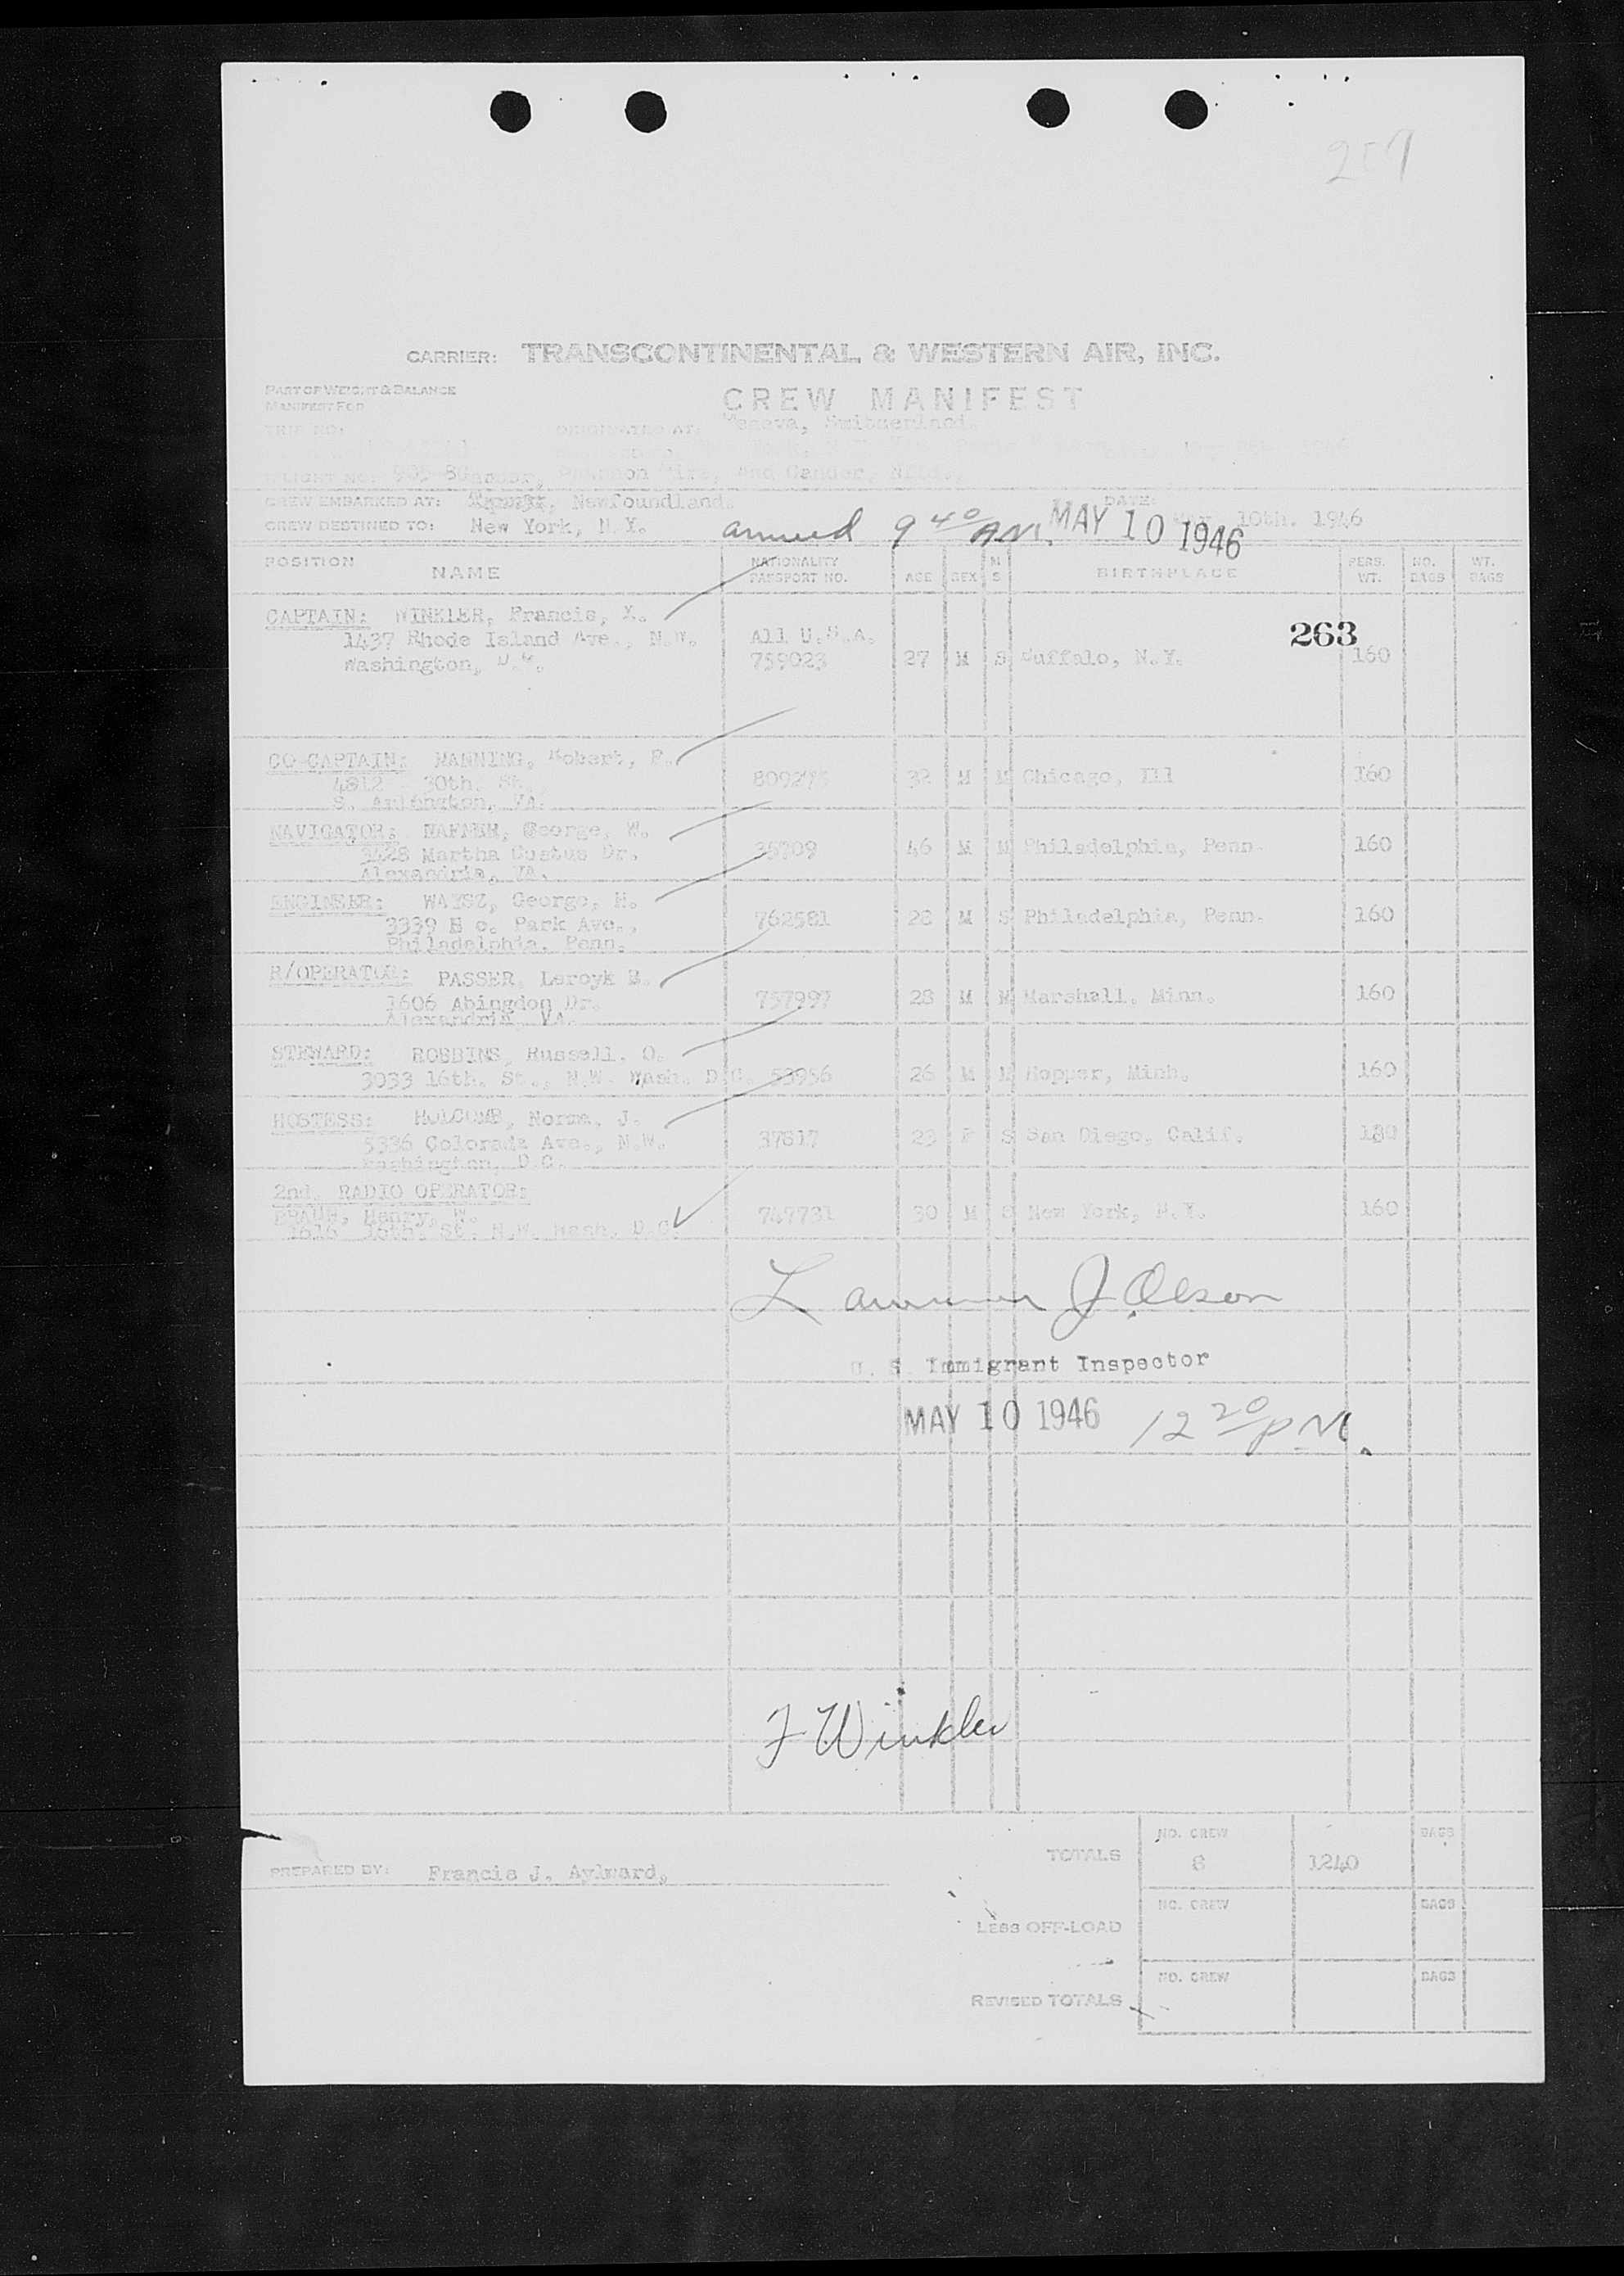 257
CARRIER: TRANSCONTINENTAL & WESTERN AIR, INC.
PART OF WEIGHT & BALANCE
MANIFEST FOR
CREW MANIFEST
TRIP NO. ORIGINATED AT: Geneva, Switzerland.
FLIGHT NO. and Gander, Nfld.
CREW EMBARKED AT: Newfoundland. DATE:
CREW DESTINED TO: New York, N.Y. arrived 9 40 AM. MAY 10 1946 10th. 1946
POSITION NAME NATIONALITY PASSPORT NO. AGE SEX M S BIRTHPLACE PERS. WT. NO. BAGS WT. BAGS
263
CAPTAIN: WINKLER, Francis, X.
1437 Rhode Island Ave., N.W. All U.S.A.
Washington, D.C. 759023 27 M S Buffalo, N.Y. 160
CO-CAPTAIN: MANNING, Robert, F.
4812 30th. St., 32 M M Chicago, Ill 160
S. Arlington, VA.
NAVIGATOR: HAFNER, George, W.
3428 Martha Custus Dr. 35709 46 M M Philadelphia, Penn. 160
Alexandria, VA.
ENGINEER: WAYSZ, George, H.
3339 Park Ave., 762581 28 M S Philadelphia, Penn. 160
Philadelphia, Penn.
R/OPERATOR: PASSER, Leroyk B.
1606 Abingdon Dr. 757997 28 M M Marshall, Minn. 160
Alexandria, VA.
STEWARD: ROBBINS, Russell, O.
3033 16th. St., N.W. Wash. D.C. 53956 26 M M 160
HOSTESS: HOLCOMB, Norma, J.
5336 Colorado Ave., N.W. 37817 23 F S San Diego, Calif.
Washington, D.C.
2nd. RADIO OPERATOR:
BRAUN, Henry, W. 747731 30 M S New York, N.Y. 160
1616 16th. St. N.W. Wash. D.C.
Lawrence J Olson
U. S. Immigrant Inspector
MAY 10 1946 12 20 P.M.
F Winkler
TOTALS NO. CREW 1240 BAGS
PREPARED BY: Francis J. Aylward,
LESS OFF-LOAD NO. CREW BAGS
REVISED TOTALS NO. CREW BAGS